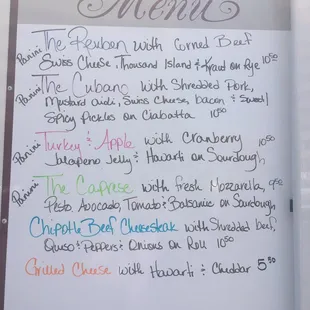 Menu
Panini The Reuben with Corned Beef
Swiss Cheese, Thousand Island & Kraut on Rye 10⁵⁰
Panini The Cubano with Shredded Pork,
Mustard aioli, Swiss Cheese, bacon & Sweet/
Spicy Pickles on Ciabatta 10⁵⁰
Panini Turkey & Apple with Cranberry 10⁵⁰
Jalapeno Jelly & Havarti on Sourdough
Panini The Caprese with fresh Mozzarella, 9⁵⁰
Pesto, Avocado, Tomato & Balsamic on Sourdough
Chipotle Beef Cheesesteak with Shredded beef,
Queso & Peppers & Onions on Roll 10⁵⁰
Grilled Cheese with Havarti & Cheddar 5⁵⁰